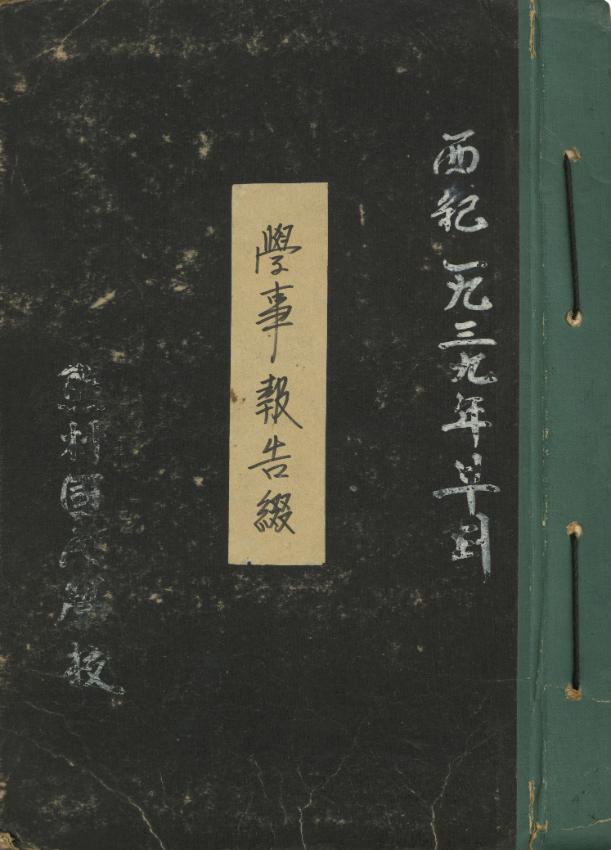 西紀一九三九年
學事報告綴
國民學校